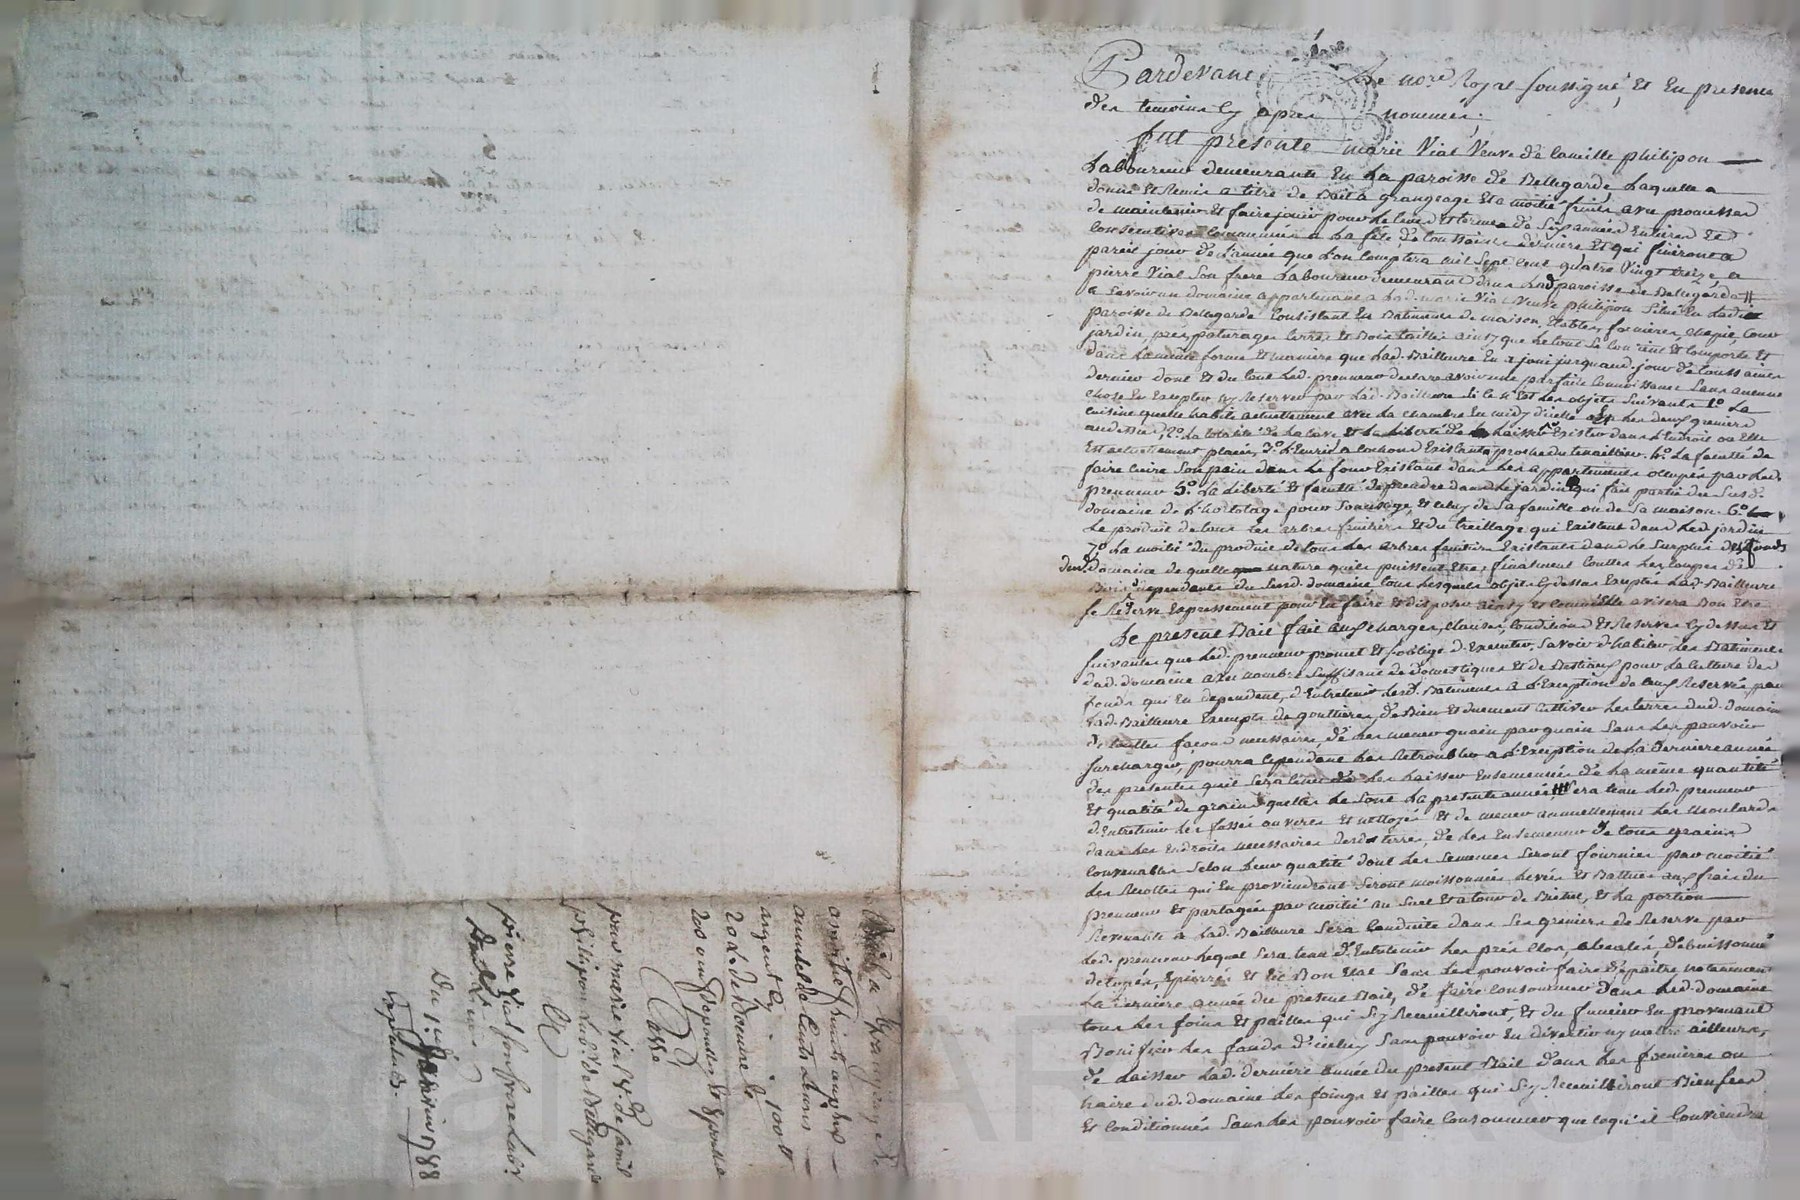 Pardevant Le nore Royal soussigné, Et En presence
des temoins Cy apres nommés;
fut presente marie Vial Veuve de Camille philipon
Laboureur demeurante En La paroisse de Bellegarde Laquelle a
donné Et Remis a titre de Bail a grangeage Et a moitié fruits avec promesse
de maintenir Et faire jouir pour Le tems Et terme de Six années Entieres Et
Consecutives Commencées a La fête de toussaint derniere Et qui finiront a
pareil jour de L'année que L'on Comptera mil Sept Cent quatre Vingt treize a
pierre Vial Son frere Laboureur demeurant dans Lad. paroisse de Bellegarde
a Savoir un domaine appartenant a Lad. marie Vial Veuve philipon Situé En Ladite
paroisse de Bellegarde Consistant En Batiments de maison, Etables, fenieres, chapit, Cour
jardin, prés, paturages terres Et Bois taillis ainsy que Le tout Se Contient Et Comporte Et
dans La même forme Et maniere que Lad. Bailleure En a joui jusquaud. jour de toussaint
dernier dont Et du tout Led. preneur declare avoir une parfaite Connoissance Sans aucune
chose En Excepter ny Reserver par Lad. Bailleure Si Ce n'Est Les objets Suivants 1º La
cuisine quelle habite actuellement avec La chambre En midy d'icelle Les deux greniers
audessus, 2º La totalité de La Cave Et La Liberté de Laisser Exister dans L'Endroit ou Elle
Est actuellement placée, 3º L'Ecurie a Cochons Existante proche du tenaillier. 4º La faculté de
faire Cuire Son pain dans Le four Existant dans Les appartements occupés par Led.
preneur 5º La Liberté Et faculté de prendre dans Le jardin qui fait partie du Susd.
domaine de L'hortolage pour Son usage, Et Celuy de Sa famille ou de Sa maison. 6º
Le produit de tous Les arbres fruitiers Et du treillage qui Existent dans Led. jardin
7º La moitié du produit de tous Les arbres fruitiers Existants dans Le Surplus des fonds
dud. domaine de quelle nature quils puissent Etre; finalment toutes Les Coupes de
Bois dependants du Susd. domaine tous Lesquels objets Cy dessus Exceptés Lad. Bailleure
Se Reserve Expressement pour En faire Et disposer ainsy Et Comme Elle avisera Bon Etre
Le present Bail fait aux charges, Clauses, Conditions Et Reserves Cy dessus Et
Suivantes que Led. preneur promet Et s'oblige d'Executer, Savoir d'habiter Les Batiments
dud. domaine avec nombre Suffisant de Domestiques Et de Bestiaux pour La Culture des
fonds qui En dependent, d'Entretenir Lesd. Batiments a L'Exception de Ceux Reservés par
Lad. Bailleure Exempts de gouttieres, de Bien Et duement Cultiver Les terres dud. domaine
de toutes façons necessaires, de Les mener quain par quain Sans Les pouvoir
Surcharger, pourra Cependant Les Retroubler a L'Exception de La Derniere année
des presentes quil Sera tenu de Les Laisser Ensemencées de La même quantité
Et qualité de grains quelles Le Sont La presente année, Sera tenu Led. preneur
d'Entretenir Les fossés ouverts Et nettoyés Et de mener annuellement Les
dans Les Endroits necessaires desd. terres, de Les Ensemencer de tous grains
Convenables Selon Leur qualité dont Les Semences Seront fournies par moitié
Les Recoltes qui En proviendront Seront moissonnées Levées Et Battues aux frais du
preneur Et partagées par moitié au Suel Et a tour de Bichet, Et La portion
Revenante a Lad. Bailleure Sera Conduite dans Ses greniers de Reserve par
Led. preneur Lequel Sera tenu d'Entretenir Les prés Clos, abealés, debuissonnés
detupés, Epierrés Et En Bon Etat Sans Les pouvoir faire depaitre, notamment
La derniere année du present Bail, de faire Consommer dans Led. domaine
tous Les foins Et pailles qui S'y Recuilliront, Et du fumier En provenant
Bonifier Les fonds d'iceluy Sans pouvoir En divertir ny mettre ailleurs,
de Laisser Lad. derniere année du present Bail dans Les fenieres ou
haire dud. domaine Les foings Et pailles qui S'y Recuilliront Bien secs
Et Conditionnés Sans Les pouvoir faire Consommer que Ce qu'il Conviendra
Bail a Grangeage Et
a moitié fruits
annuel de
argent Cy 100 tt
20 L. de Beurre Cy
200 oeufs
Passé
par marie Vial Ve de Camille
philipon Lab. de Bellegarde
A
pierre Vial Son frere Labr.
Dud. Lieu
Du 1788